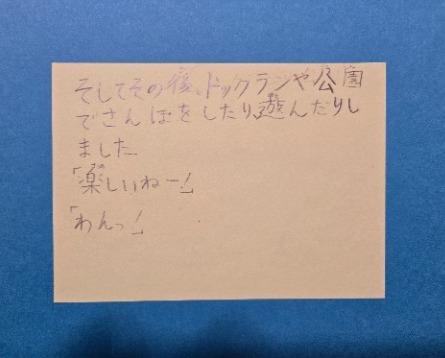 そしてその後、ドックランや公園
でさんぽをしたり、遊んだりし
ました。
「楽しいねー!」
「わんっ!」